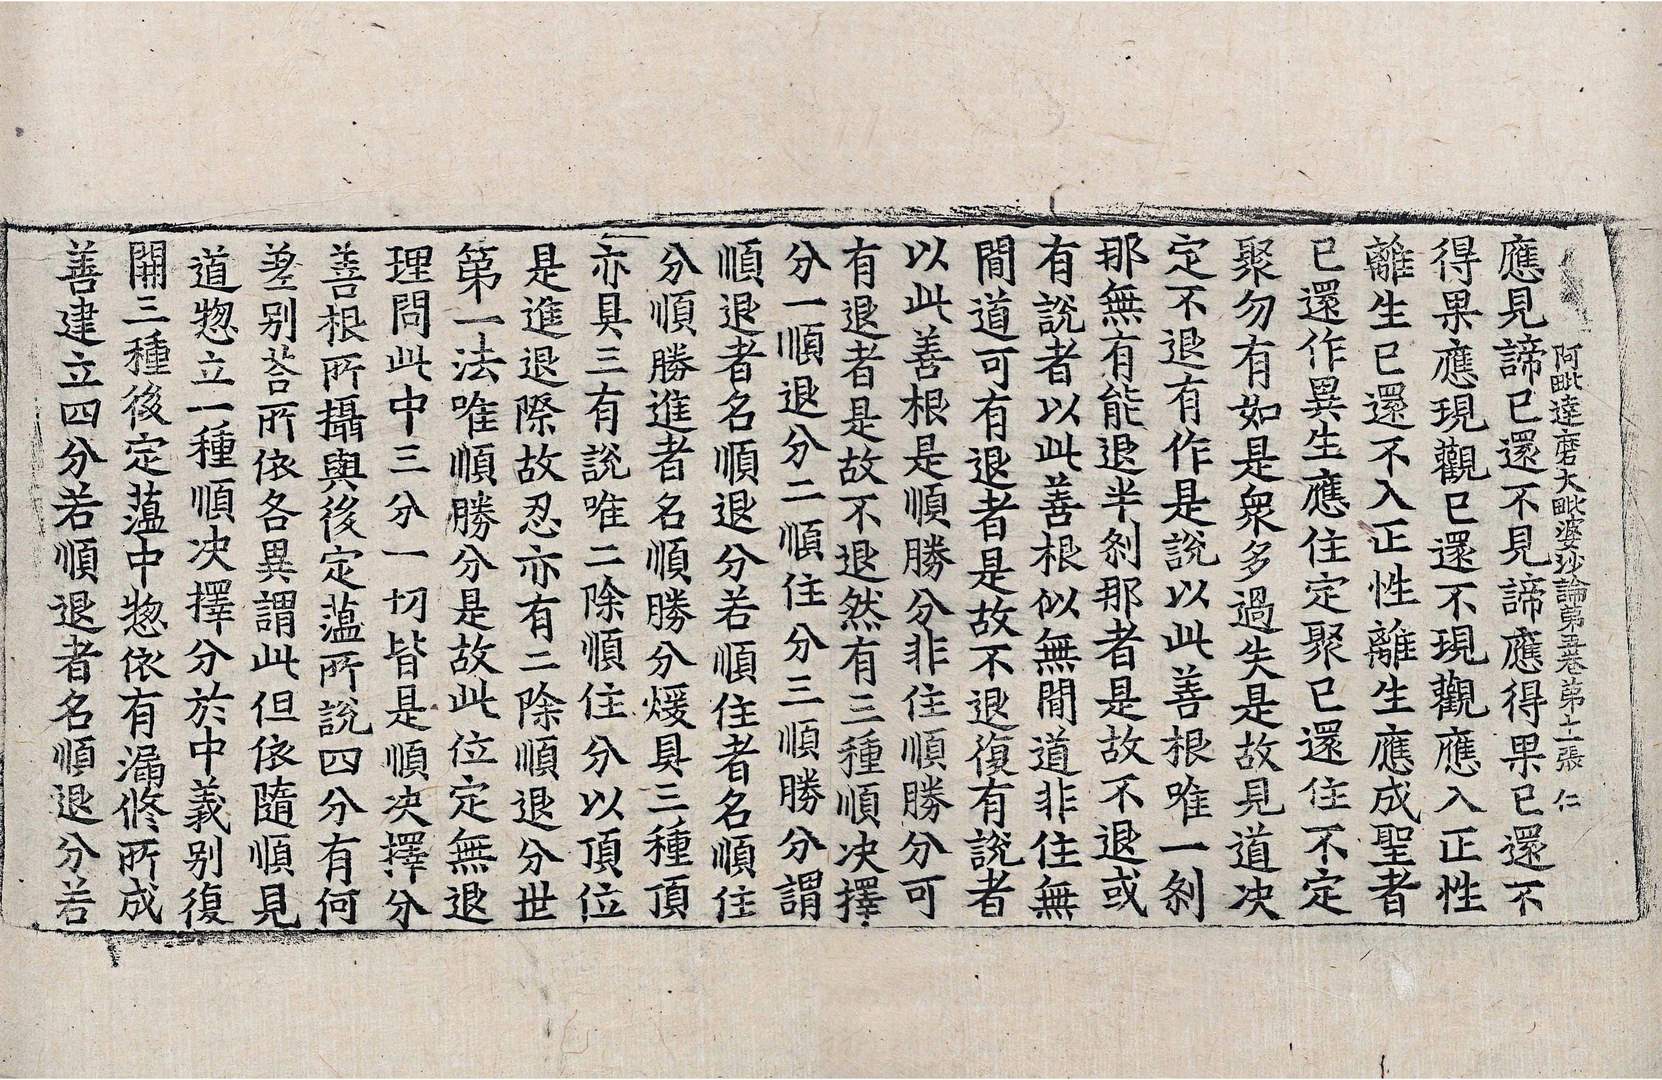 阿毗達磨大毗婆沙論第五卷第十一張 仁
應見諦已還不見諦應得果已還不
得果應現觀已還不現觀應入正性
離生已還不入正性離生應成聖者
已還作異生應住定聚已還住不定
聚勿有如是衆多過失是故見道決
定不退有作是說以此善根唯一刹
那無有能退半刹那者是故不退或
有說者以此善根似無間道非住無
間道可有退者是故不退復有說者
以此善根是順勝分非住順勝分可
有退者是故不退然有三種順决擇
分一順退分二順住分三順勝分謂
順退者名順退分若順住者名順住
分順勝進者名順勝分煖具三種頂
亦具三有說唯二除順住分以頂位
是進退際故忍亦有二除順退分世
第一法唯順勝分是故此位定無退
理問此中三分一切皆是順决擇分
善根所攝與後定蘊所說四分有何
差別荅所依各異謂此但依隨順見
道惣立一種順决擇分於中義別復
開三種後定蘊中惣依有漏修所成
善建立四分若順退者名順退分若